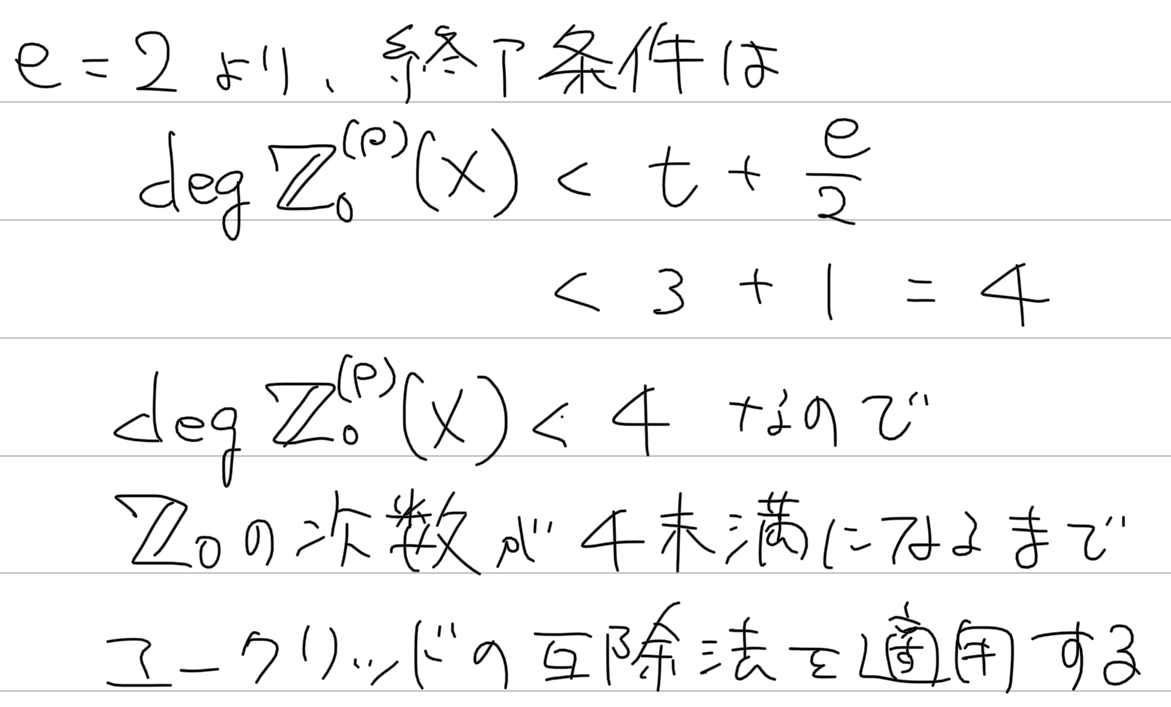 e = 2 より、終了条件は
deg ℤ₀^(p)(X) < t + e/2
< 3 + 1 = 4
deg ℤ₀^(p)(X) < 4 なので
ℤ₀の次数が4未満になるまで
ユークリッドの互除法を適用する